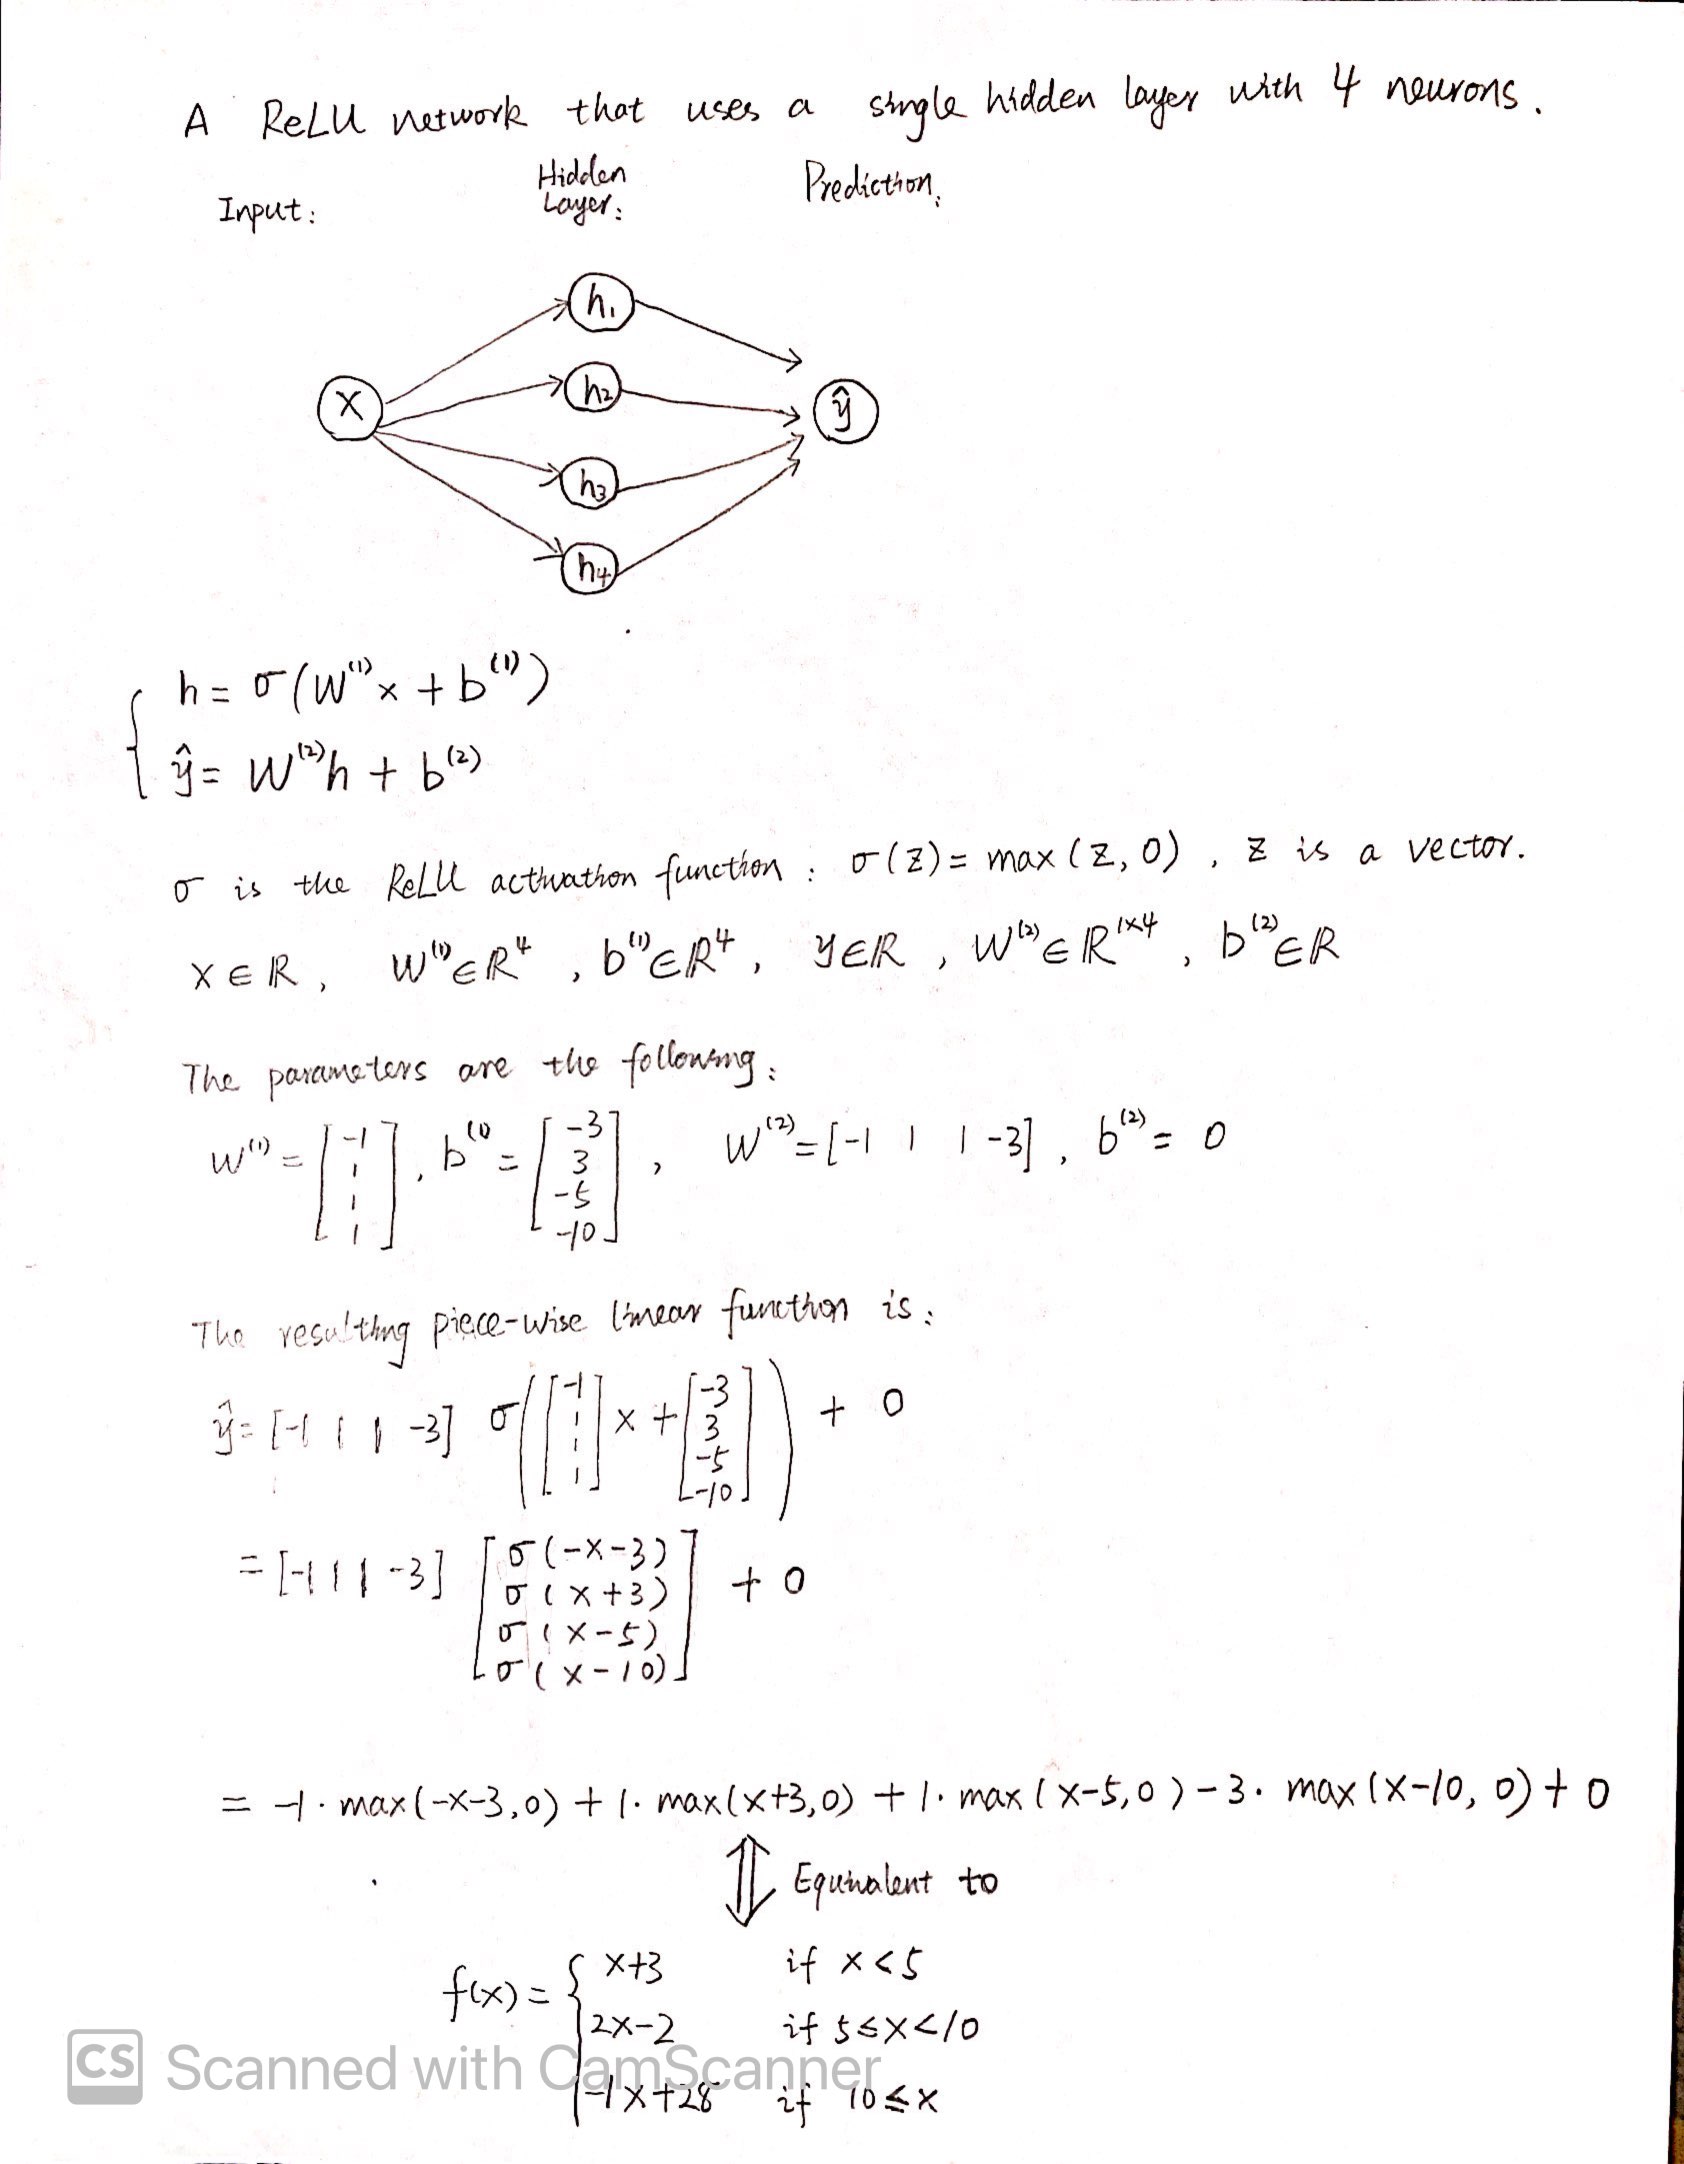 A ReLU network that uses a single hidden layer with 4 neurons.
Input:
Hidden
Layer:
Prediction:
h₁
x
h₂
ŷ
h₃
h₄
h = σ(W⁽¹⁾x + b⁽¹⁾)
ŷ = W⁽²⁾h + b⁽²⁾
σ is the ReLU activation function : σ(z) = max(z, 0) , z is a vector.
x ∈ R, W⁽¹⁾ ∈ R⁴ , b⁽¹⁾ ∈ R⁴, y ∈ R , W⁽²⁾ ∈ R¹ˣ⁴ , b⁽²⁾ ∈ R
The parameters are the following:
W⁽¹⁾ = [-1 1 1 1], b⁽¹⁾ = [-3 3 -5 -10] , W⁽²⁾ = [-1 1 1 -3] , b⁽²⁾ = 0
The resulting piece-wise linear function is:
ŷ = [-1 1 1 -3] σ([-1 1 1 1] x + [-3 3 -5 -10]) + 0
= [-1 1 1 -3] [σ(-x-3) σ(x+3) σ(x-5) σ(x-10)] + 0
= -1· max(-x-3,0) + 1· max(x+3,0) + 1· max(x-5,0) - 3· max(x-10, 0) + 0
⇕ Equivalent to
f(x) = { x+3 if x<5
2x-2 if 5≤x<10
-1x+28 if 10≤x
CS Scanned with CamScanner